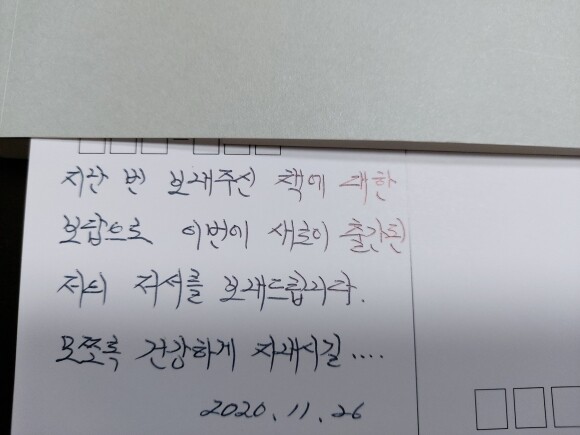 지난 번 보내주신 책에 대한
보답으로 이번에 새로이 출간된
저의 저서를 보내드립니다.
모쪼록 건강하게 지내시길....
2020. 11. 26